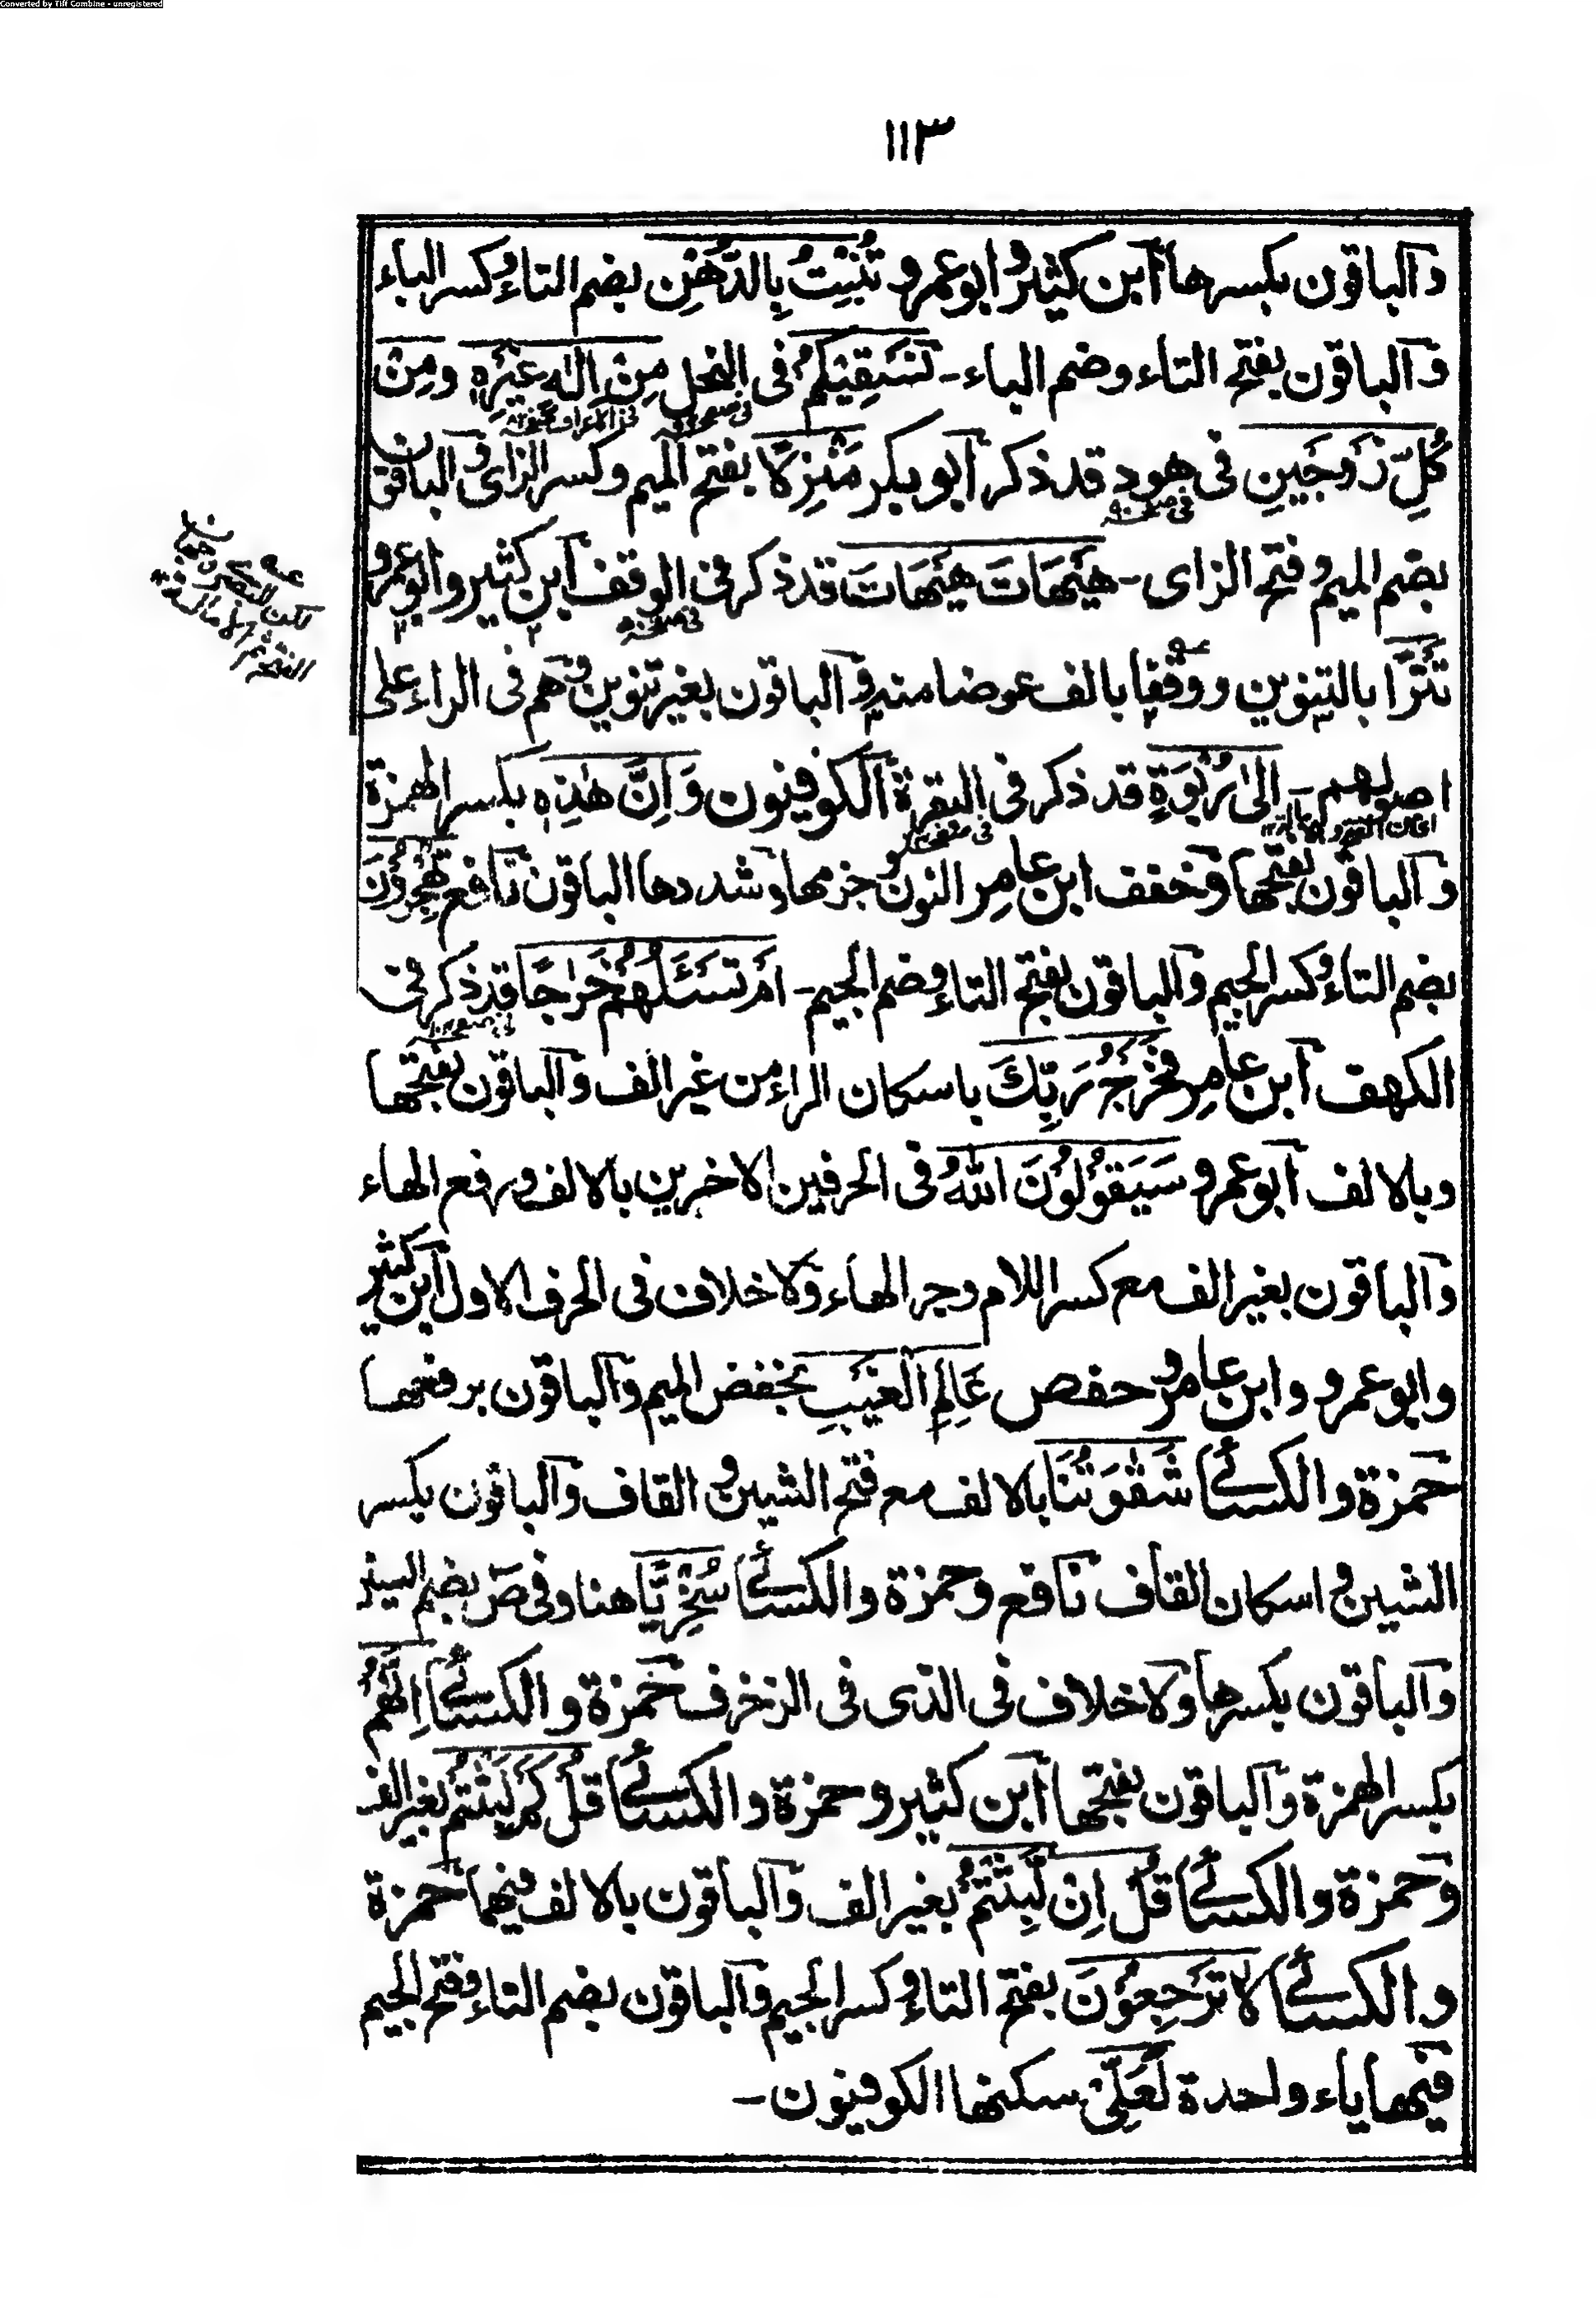 Converted by Tiff Combine - unregistered
١١٣
والباقون بكسرها ابن كثير وابو عمرو تُنْبِتُ بِالدُّهْنِ بضم التاء وكسر الباء
والباقون بفتح التاء وضم الباء - نُسْقِيْكُمْ فى النحل مِنْ اِلٰهٍ غَيْرُهٗ ومِنْ
كُلِّ زَوْجَيْنِ فى هود قد ذكر ابو بكر مَنْزِلًا بفتح الميم وكسر الزاى والباقون
بضم الميم وفتح الزاى - هَيْهَاتَ هَيْهَاتَ قد ذكر فى الوقف ابن كثير وابو عمرو
تَتْرًا بالتنوين ووقفا بالف عوضا منه والباقون بغير تنوين وهم فى الراء على
اصولهم - اِلٰى رَبْوَةٍ قد ذكر فى البقرة الكوفيون وَاِنَّ هٰذِهٖ بكسر الهمزة
والباقون بفتحها وخفف ابن عامر النون وجزمها وشددها الباقون نافع تُهْجِرُوْنَ
بضم التاء وكسر الجيم والباقون بفتح التاء وضم الجيم - اَمْ تَسْئَلُهُمْ خَرْجًا قد ذكر فى
الكهف ابن عامر فَخَرْجُ رَبِّكَ باسكان الراء من غير الف والباقون بفتحها
وبالالف ابو عمرو سَيَقُوْلُوْنَ اللّٰهُ فى الحرفين الاخرين بالالف ورفع الهاء
والباقون بغير الف مع كسر اللام وجر الهاء ولا خلاف فى الحرف الاول ابن كثير
وابو عمرو وابن عامر وحفص عَالِمِ الْغَيْبِ بخفض الميم والباقون برفعها
حمزة والكسائى شَقٰوَتُنَا بالالف مع فتح الشين والقاف والباقون بكسر
الشين واسكان القاف نافع وحمزة والكسائى سُخْرِيًّا هنا وفى صٓ بضم السين
والباقون بكسرها ولا خلاف فى الذى فى الزخرف حمزة والكسائى اِنَّهُمْ
بكسر الهمزة والباقون بفتحها ابن كثير وحمزة والكسائى قُلْ كَمْ لَبِثْتُمْ بغير الف
وحمزة والكسائى قُلْ اِنْ لَّبِثْتُمْ بغير الف والباقون بالالف فيهما حمزة
والكسائى لَا تَرْجِعُوْنَ بفتح التاء وكسر الجيم والباقون بضم التاء وفتح الجيم
فيها ياء واحدة لَعَلِّىْ سكنها الكوفيون -